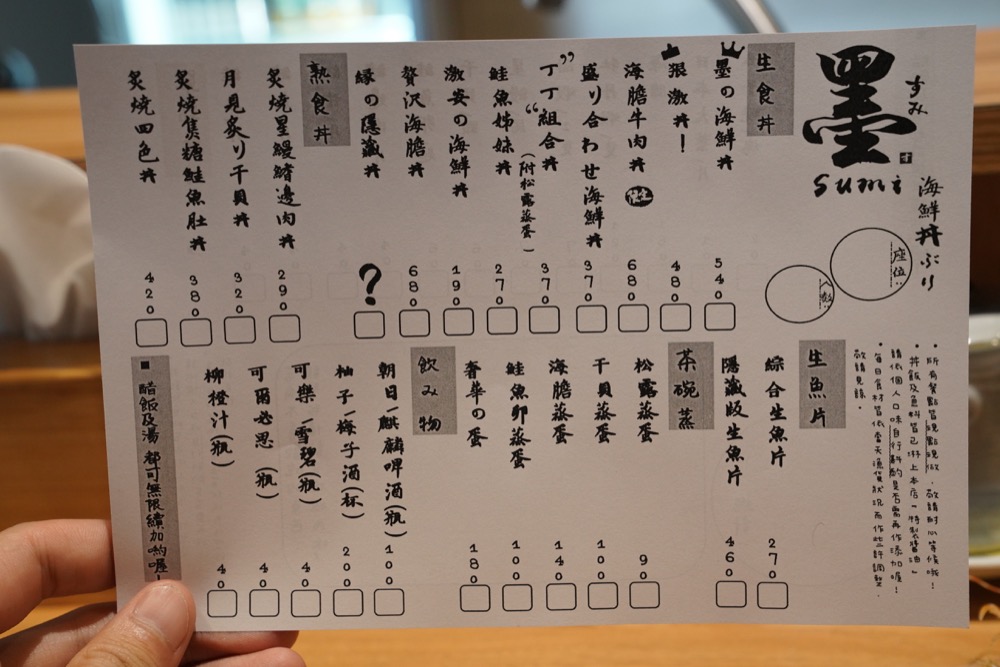 墨
すみ
sumi
海鮮丼ぶり
座位:
人數:
生食丼
墨の海鮮丼 540
張激丼! 480
海膽牛肉丼 680
盛り合わせ海鮮丼 370
"丁丁"組合丼 (附松露蒸蛋) 370
鮭魚姊妹丼 270
激安の海鮮丼 190
贅沢海膽丼 680
縁の隱藏丼 ?
熟食丼
炙燒星鰻鰭邊肉丼 290
月見炙り干貝丼 320
炙燒焦糖鮭魚肚丼 380
炙燒四色丼 420
•所有餐點皆現點現做,敬請耐心等候哦!
•丼飯及魚料皆已淋上本店"特製醬油"
請依個人口味自行斟酌是否需再作添加喔!
•每日食材皆依當天漁貨狀況而作些許調整,
敬請見諒。
生魚片
綜合生魚片 270
隱藏版生魚片 460
茶碗蒸
松露蒸蛋 90
干貝蒸蛋 100
海膽蒸蛋 140
鮭魚卵蒸蛋 100
奢華の蛋 180
飲み物
朝日/麒麟啤酒(瓶) 100
柚子/梅子酒(杯) 200
可樂/雪碧(瓶) 40
可爾必思(瓶) 40
柳橙汁(瓶) 40
■ 醋飯及湯 都可無限續加喲喔!